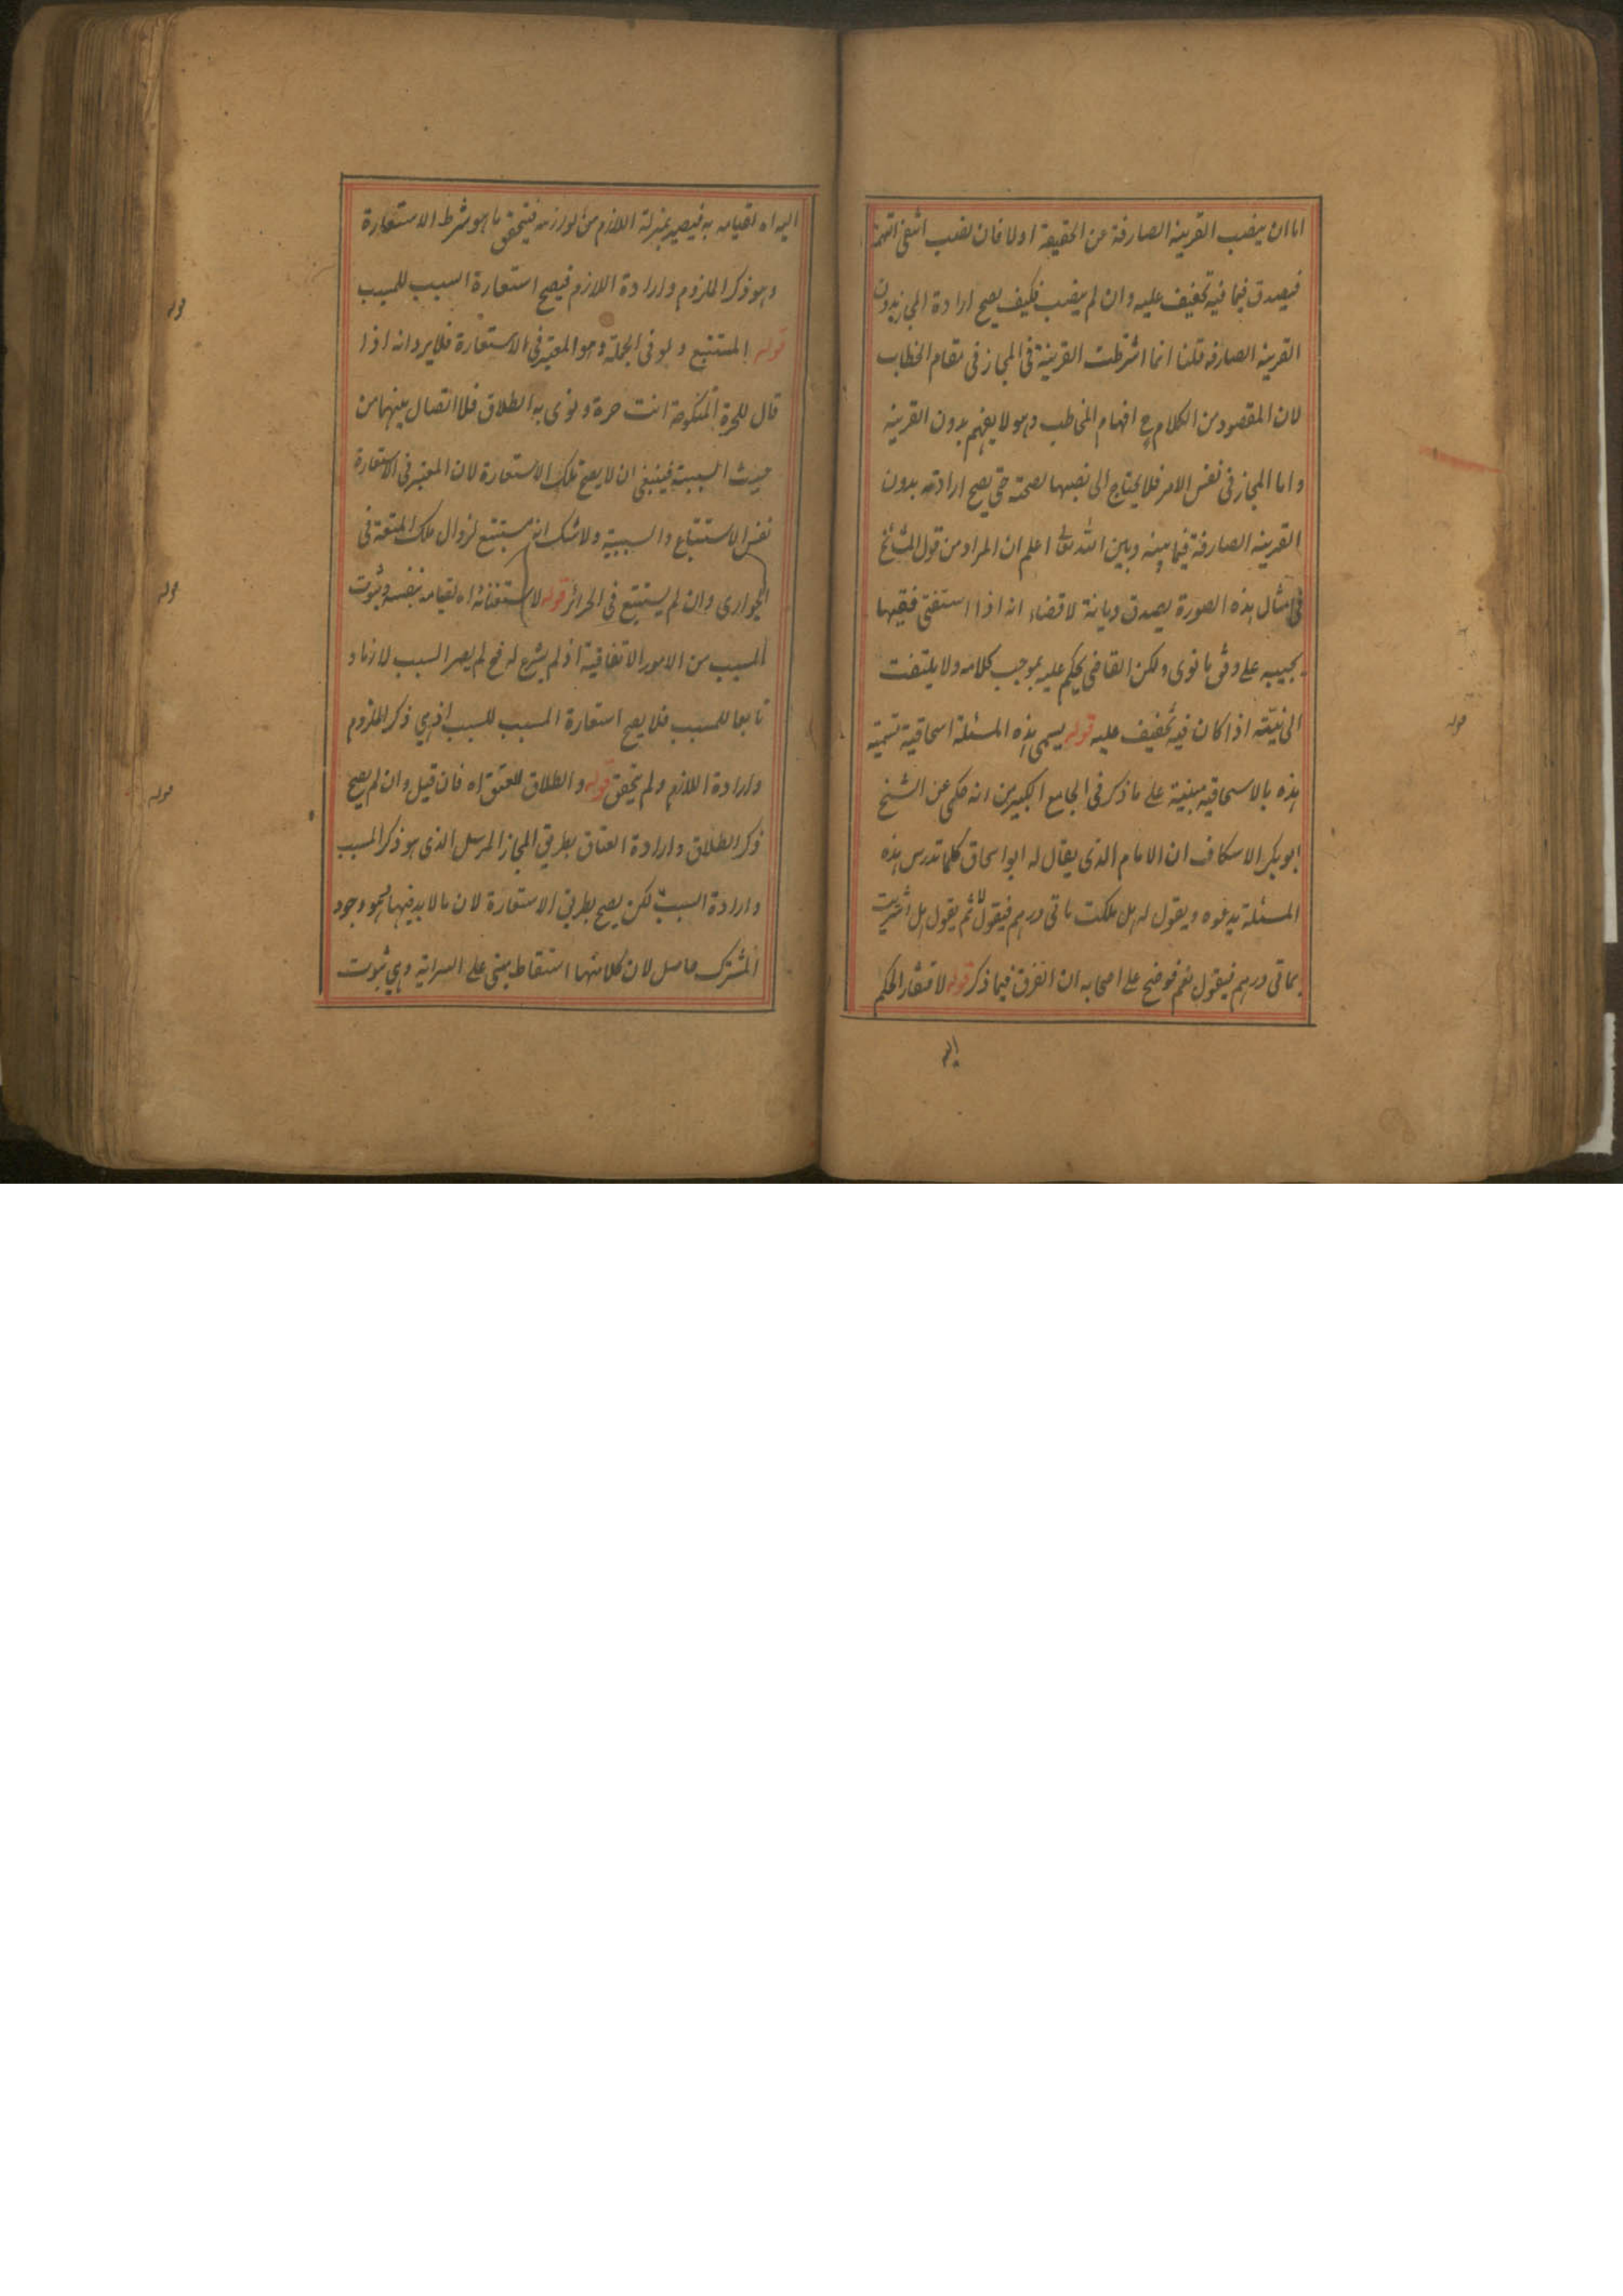 اما ان ينصب القرينه الصارفة عن الحقيقة اولا فان نصب انتفى التهمة
فيصدق فيما فيه تخفيف عليه وان لم ينصب فكيف يصح ارادة المجاز بدون
القرينه الصارفه قلنا انما اشترطت القرينة فى المجاز فى مقام الخطاب
لان المقصود من الكلام ح افهام المخاطب وهو لا يفهم بدون القرينه
واما المجاز فى نفس الامر فلا يحتاج الى نصبها لصحته حتى يصح ارادته بدون
القرينه الصارفة فيما بينه وبين الله تعالى اعلم ان المراد من قول المشائخ
فى امثال هذه الصورة يصدق ديانة لا قضاء انه اذا استفتى فقيها
يجيبه على وفق ما نوى ولكن القاضى يحكم عليه بموجب كلامه ولا يلتفت
الى نيته اذا كان فيه تخفيف عليه قوله يسمى هذه المسئلة اسحاقية تسمية
هذه بالاسحاقيه مبنية على ما ذكر فى الجامع الكبير من انه حكى عن الشيخ
ابو بكر الاسكاف ان الامام الذى يقال له ابو اسحاق كلما تدرس هذه
المسئلة يدعوه ويقول له هل ملكت ماتى درهم فيقول لا ثم يقول هل اشتريت
بماتى درهم فيقول نعم فوضح على اصحابه ان الفرق فيما ذكر قوله لافتقار الحكم
اليه
قوله
اليه اه لقيامه به فيصير بمنزلة اللازم من لوازمه فيتحقق ما هو شرط الاستعارة
وهو ذكر الملزوم وارادة اللازم فيصح استعارة السبب للمسبب
قوله المستتبع ولو فى الجملة وهو المعتبر فى الاستعارة فلا يرد انه اذا
قال للحرة المنكوحة انت حرة ونوى به الطلاق فلا اتصال بينهما من
حيث السببية فينبغى ان لا يصح تلك الاستعارة لان المعتبر فى الاستعارة
نفس الاستتباع والسببية ولا شك انه مستتبع لزوال ملك المتعة فى
الجوارى وان لم يستتبع فى الحرائر قوله لاستغنائه اه لقيامه بنفسه وثبوت
المسبب من الامور الاتفاقية اذ لم يشرع له فح لم يصر السبب لازما و
تابعا للمسبب فلا يصح استعارة المسبب للسبب اذ هي ذكر الملزوم
وارادة اللازم ولم يتحقق قوله والطلاق للعتق اه فان قيل وان لم يصح
ذكر الطلاق وارادة العتاق بطريق المجاز المرسل الذى هو ذكر المسبب
وارادة السبب لكن يصح بطريق الاستعارة لان ما لا بد فيها هو وجود
المشترك حاصل لان كلا منهما اسقاط مبنى على السراية وهي ثبوت
قوله
قوله
قوله